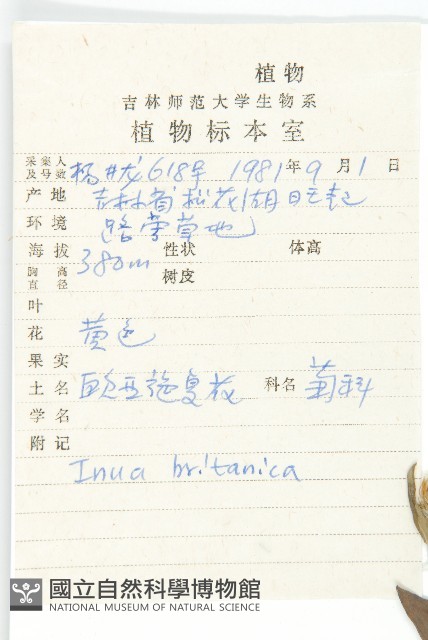 植物
吉林师范大学生物系
植物标本室
采集人及号数 杨 618号 1981年9月1日
产地 吉林省松花湖
环境 路旁草地
海拔 380m 性状 体高
胸高直径 树皮
叶
花 黄色
果实
土名 欧亚旋复花 科名 菊科
学名
附记
Inua britanica
國立自然科學博物館
NATIONAL MUSEUM OF NATURAL SCIENCE